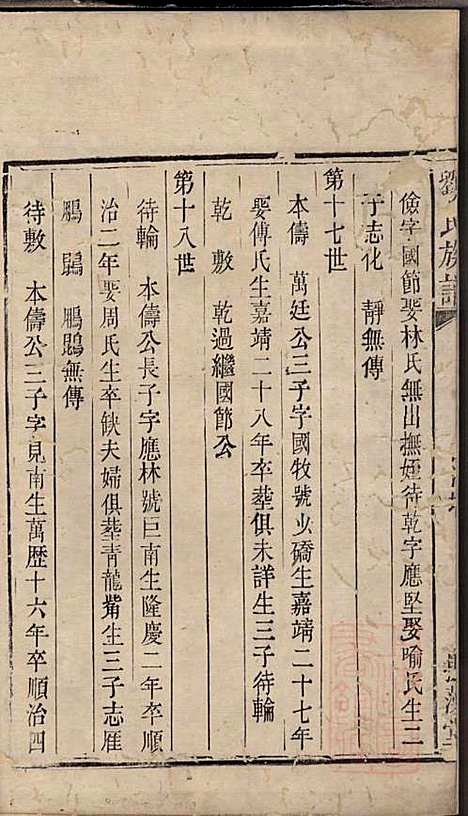 劉氏族譜
儉字國節娶林氏無出撫姪待乾字應堅娶喻氏生二
子志化　靜無傳
第十七世
本儔　萬廷公三子字國牧號少磷生嘉靖二十七年
娶傅氏生嘉靖二十八年卒葬俱未詳生三子待輪
乾　敷　乾過繼國節公
第十八世
待輪　本儔公長子字應林號巨南生隆慶二年卒順
治二年娶周氏生卒缺夫婦俱葬青龍嘴生三子志雁
鵬　鵾　鵬鵾無傳
待敷　本儔公三子字見南生萬歷十六年卒順治四